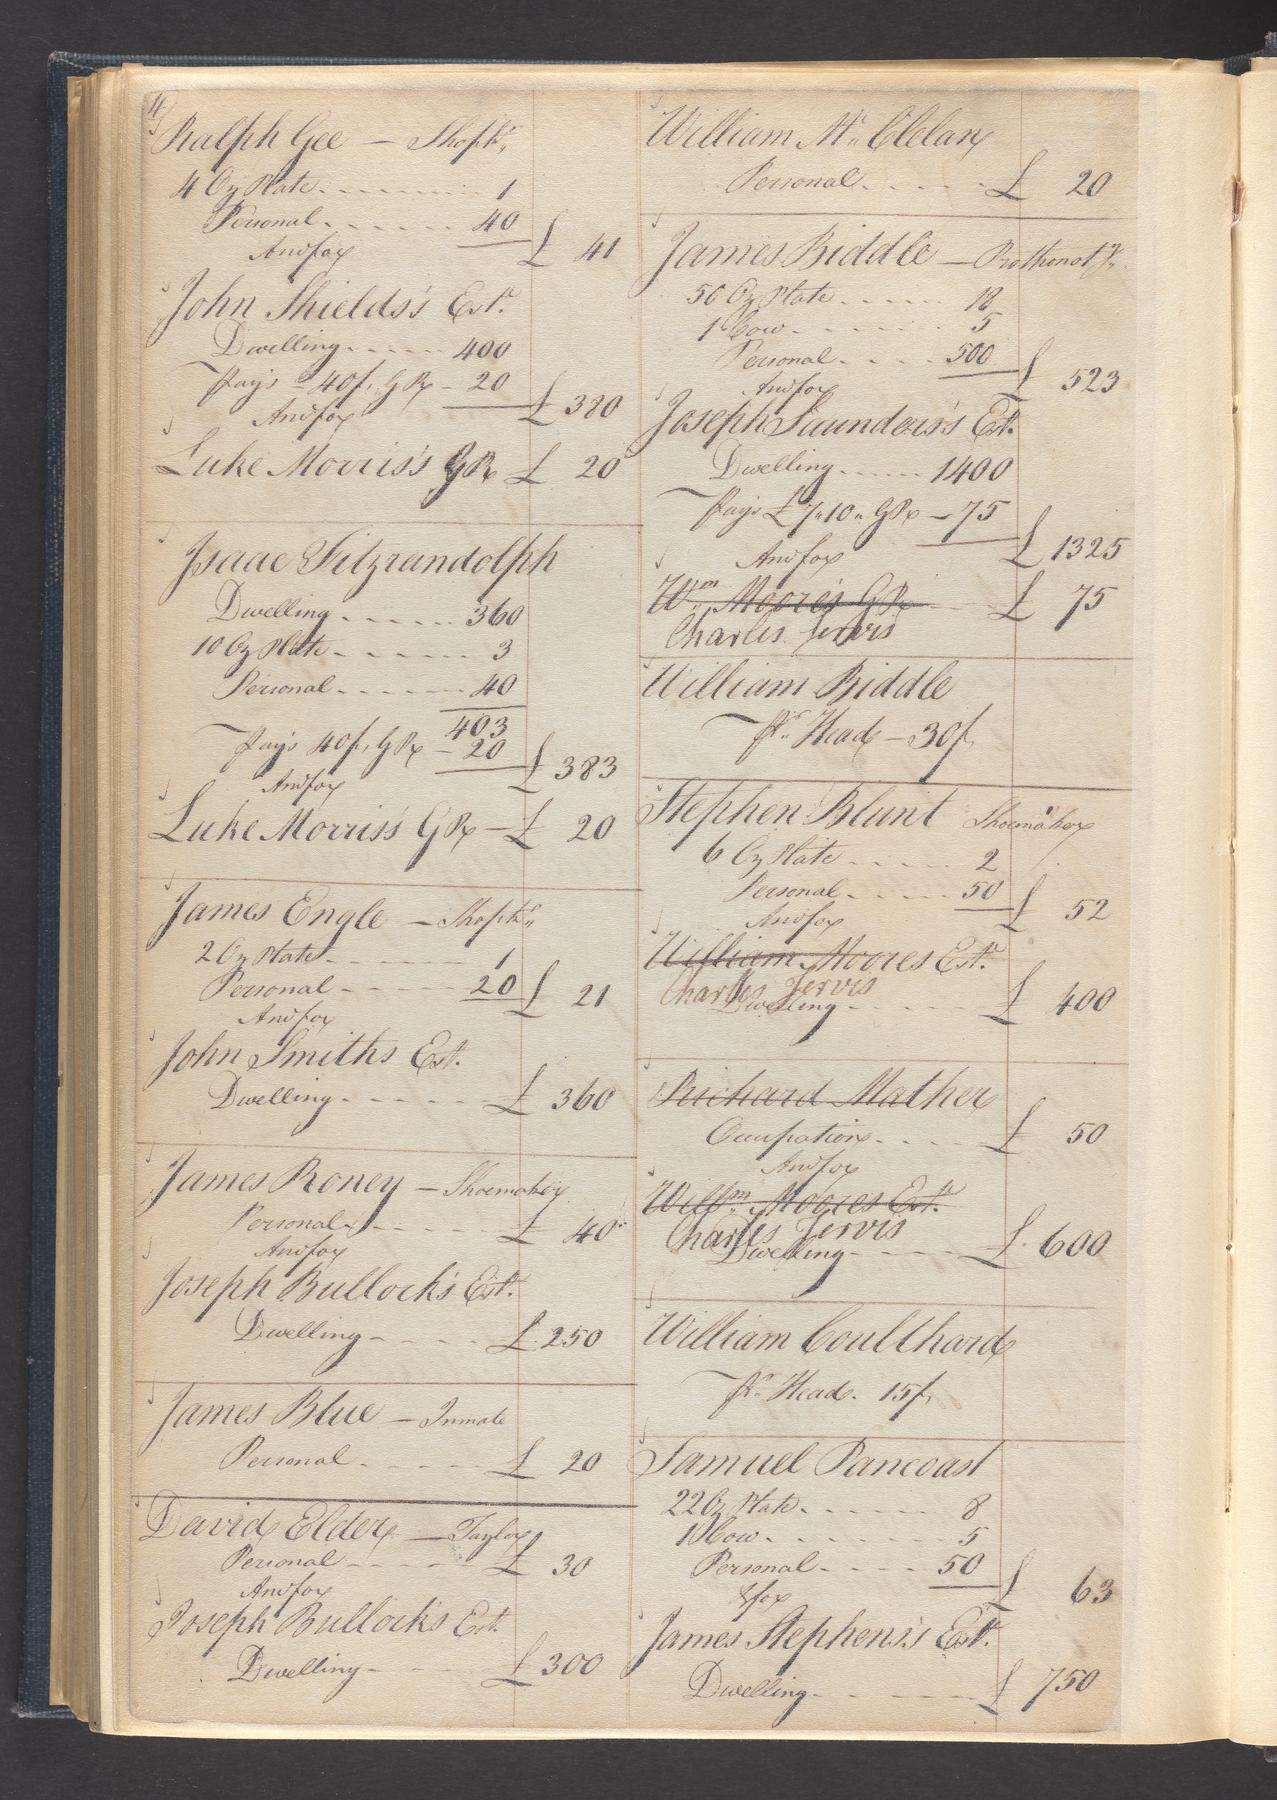 4
Ralph Gee — Shopkr.
4 Oz Plate 1
Personal 40
And for £ 41
John Shields's Estt.
Dwelling 400
Pays 40/. G R — 20
And for £ 380
Luke Morris's G R £ 20
Isaac Fitzrandolph
Dwelling 360
10 Oz Plate 3
Personal 40
403
Pays 40/. G R — 20
And for £ 383
Luke Morris's G R — £ 20
James Engle — Shopkr.
2 Oz Plate 1
Personal 20
£ 21
And for
John Smiths Est.
Dwelling £ 360
James Roney — Shoemaker
Personal £ 40
And for
Joseph Bullock's Est.
Dwelling £ 250
James Blue — Inmate
Personal £ 20
David Elder — Taylor
Personal £ 30
And for
Joseph Bullock's Est.
Dwelling £ 300
William Mc. Clelan
Personal £ 20
James Biddle — Prothonoty.
50 Oz Plate 18
1 Cow 5
Personal 500
And for £ 523
Joseph Saunders's Est.
Dwelling 1400
Pays £ 7"10" G R — 75
And for £ 1325
Wm. Moore's G R £ 75
Charles Jervis
William Biddle
pr. Head — 30/.
Stephen Blunt Shoemaker
6 Oz Plate 2
Personal 50
And for £ 52
William Moores Estt.
Charles Jervis
Dwelling £ 400
Richard Mather
Occupation £ 50
And for
Willm. Moores Estt.
Charles Jervis
Dwelling £ 600
William Coulthard
pr. Head. 15/.
Samuel Pancoast
22 Oz Plate 8
1 Cow 5
Personal 50
& for £ 63
James Stephens's Estt.
Dwelling £ 750